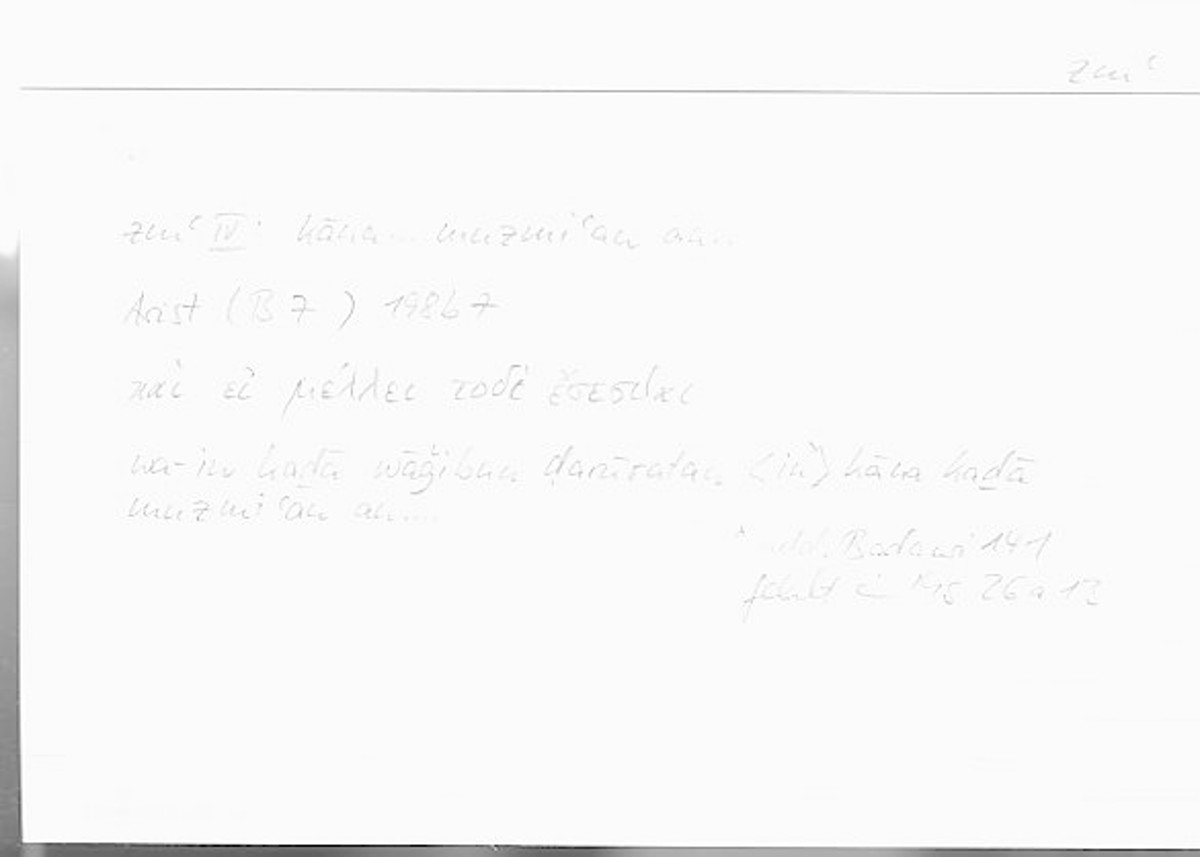 zmʿ
zmʿ IV: kāna... muzmiʿan an...
Arist (B 7) 198b7
καὶ εἰ μέλλει τοδὶ ἔσεσθαι
wa-in haḏā wāǧibun ḍarūratan <in> kāna haḏā
muzmiʿan an...
Badawi 141
fehlt in Ms 26a 12